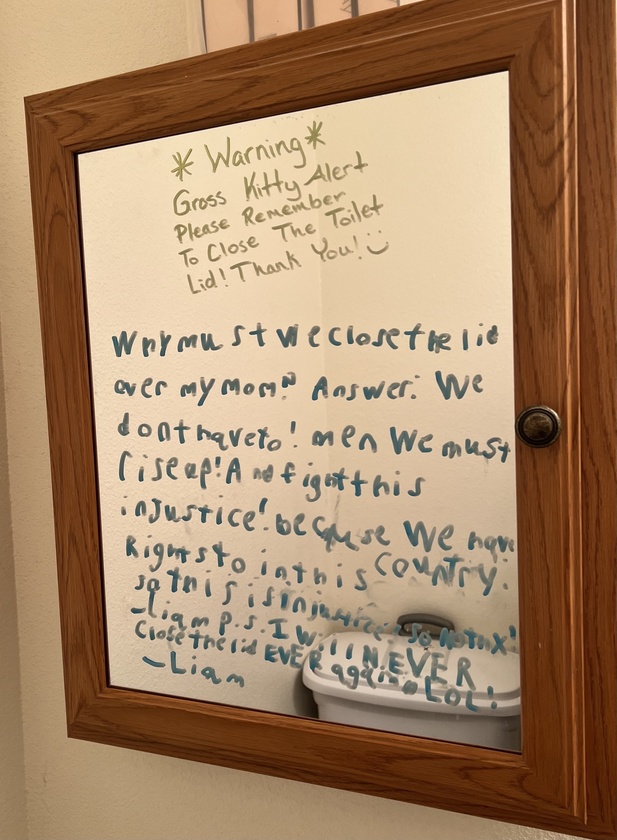 * Warning *
Gross Kitty Alert
Please Remember
To Close The Toilet
Lid! Thank You! :)
Why must we close the lid
over my mom? Answer: We
dont have to! men We must
rise up! And fight this
injustice! because We have
Rights to in this COUNTRY.
so this is injustice! So NO thX!
-Liam P.S. I Will NEVER
Close the lid EVER again LOL!
-Liam